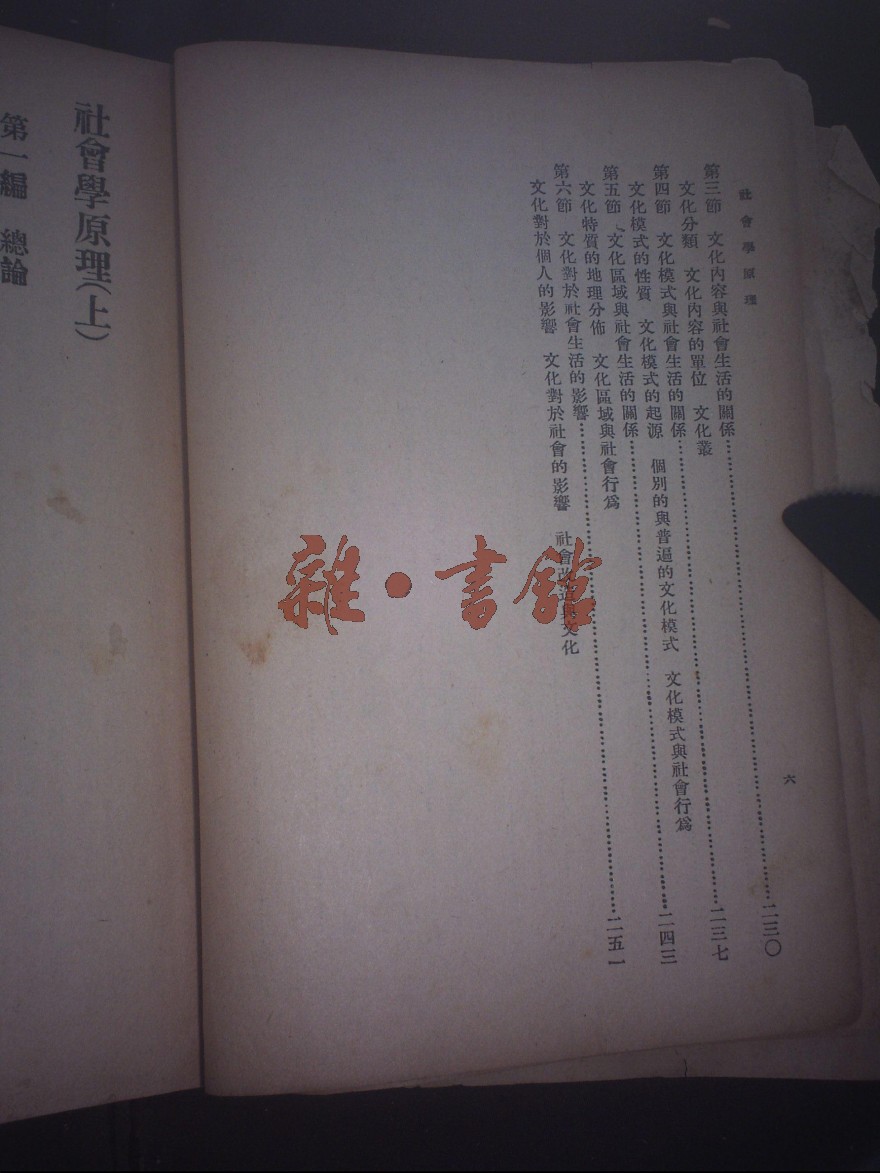 社會學原理
六
第三節　文化內容與社會生活的關係……二三〇
文化分類　文化內容的單位　文化叢
第四節　文化模式與社會生活的關係……二三七
文化模式的性質　文化模式的起源　個別的與普遍的文化模式　文化模式與社會行爲
第五節　文化區域與社會生活的關係……二四三
文化特質的地理分佈　文化區域與社會行爲
第六節　文化對於社會生活的影響……二五一
文化對於個人的影響　文化對於社會的影響　社會改造與文化
社會學原理（上）
第一編　總論
雜·書館